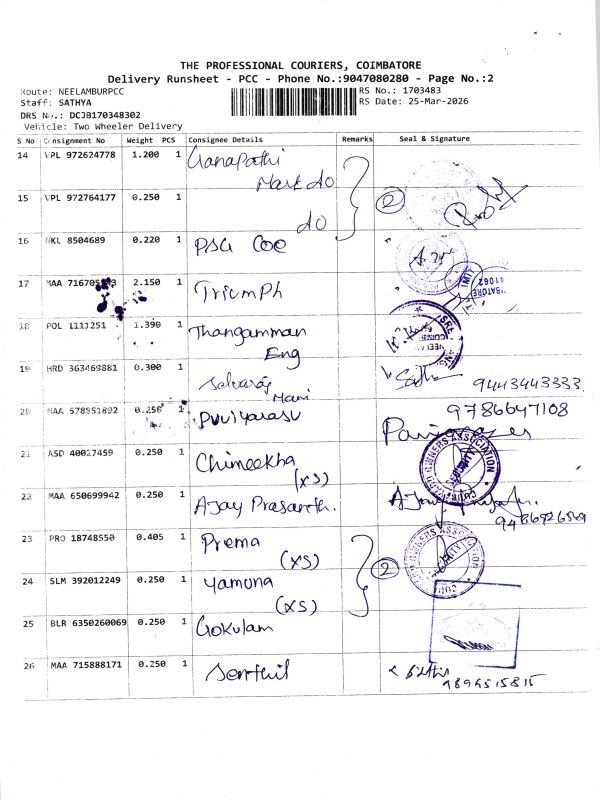 THE PROFESSIONAL COURIERS, COIMBATORE
Delivery Runsheet - PCC - Phone No.:9047080280 - Page No.:2
Route: NEELAMBURPCC
RS No.: 1703483
Staff: SATHYA
RS Date: 25-Mar-2026
DRS No.: DCJB170348302
Vehicle: Two Wheeler Delivery
S No Consignment No Weight PCS Consignee Details Remarks Seal & Signature
14 VPL 972624778 1.200 1 Ganapathi
Mark do
15 VPL 972764177 0.250 1 do
2
16 NKL 8504689 0.220 1 PSG COE
17 MAA 2.150 1 Triumph
18 POL 1.390 1 Thangamman
Eng
19 HRD 363469881 0.300 1 Selvaraj
Mani
9443443333
20 MAA 578551892 0.250 1 Puviyarasu
9786647108
21 ASD 40027459 0.250 1 Chimeekha
(XS)
OWNERS ASSOCIATION
22 MAA 650699942 0.250 1 Ajay Prasanth.
23 PRO 18748550 0.405 1 Prema
(XS)
2
OWNERS ASSOCIATION
24 SLM 392012249 0.250 1 Yamuna
(XS)
25 BLR 6350260069 0.250 1 Gokulam
26 MAA 715888171 0.250 1 Senthil
9894515815